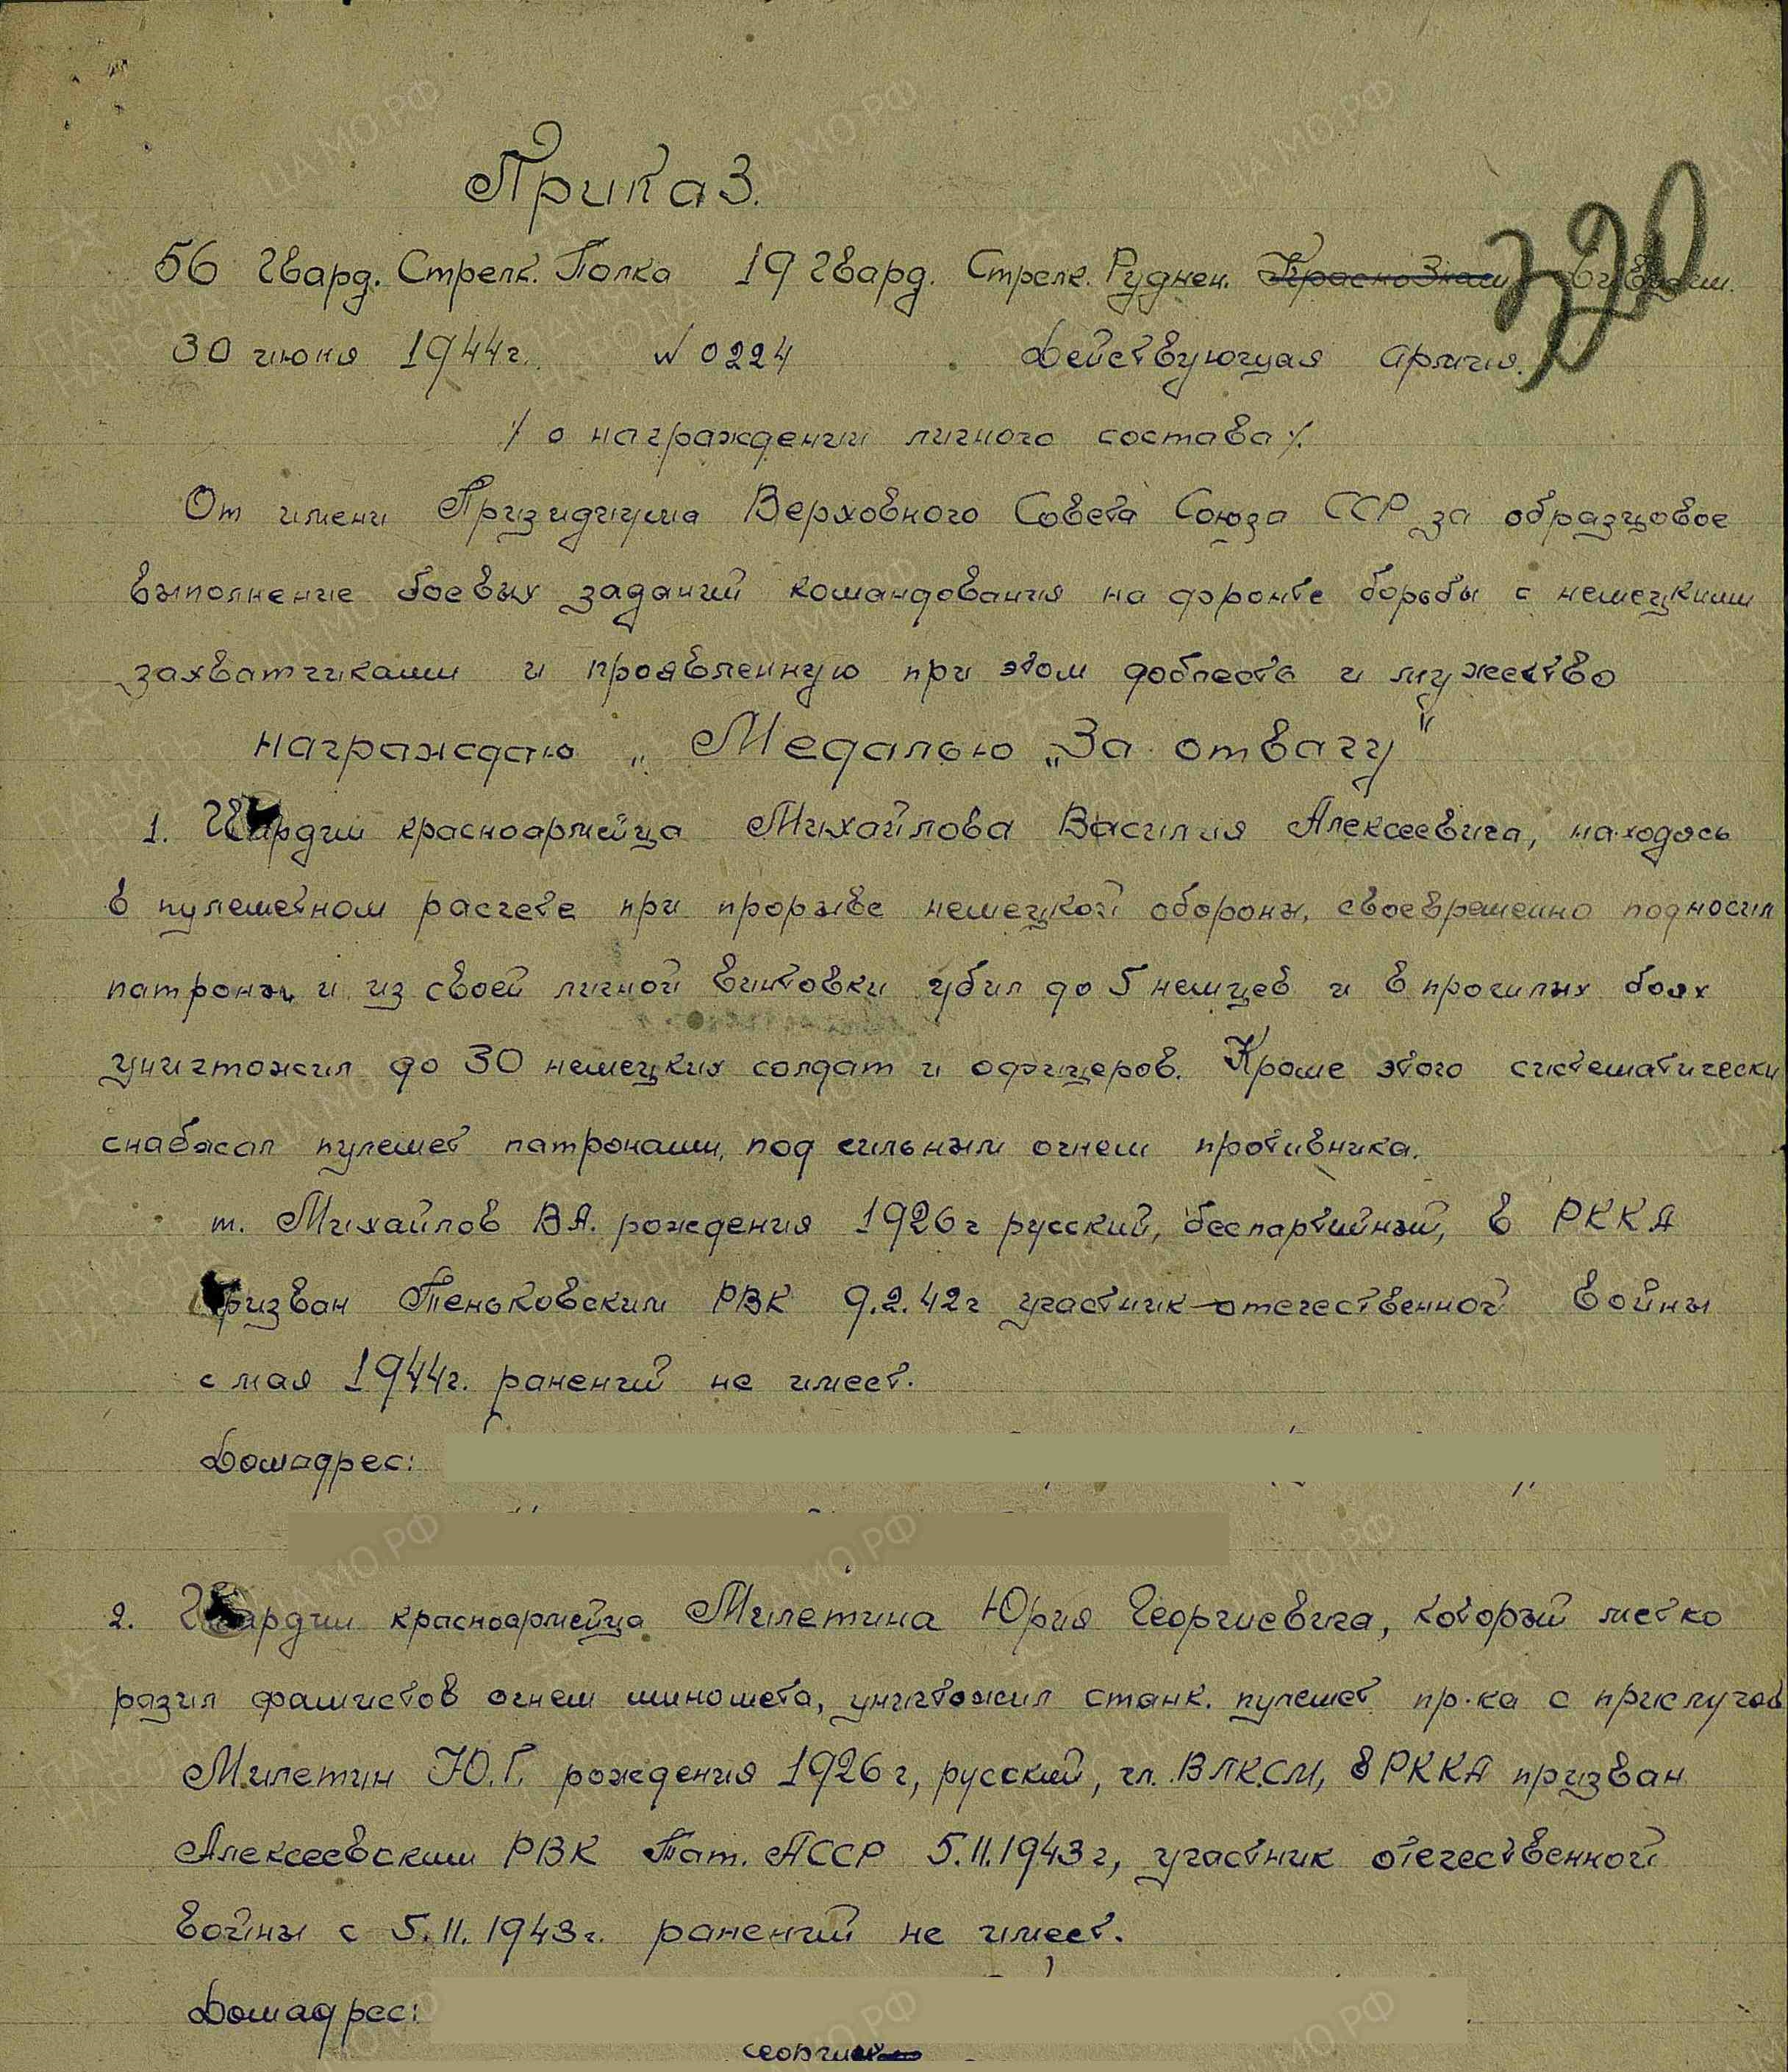 Приказ.
320
56 Гвард. Стрелк. Полка 19 Гвард. Стрелк. Руднен. КрасноЗнам дивизии.
30 июня 1944г. № 0224 Действующая армия.
/ о награждении личного состава /.
От имени Призидиума Верховного Совета Союза ССР за образцовое
выполнение боевых заданий командования на фронте борьбы с немецкими
захватчиками и проявленную при этом доблесть и мужество
награждаю „ Медалью „За отвагу"
1. Гвардии красноармейца Михайлова Василия Алексеевича, находясь
в пулеметном расчете при прорыве немецкой обороны, своевременно подносил
патроны и из своей личной винтовки убил до 5 немцев и в прошлых боях
уничтожил до 30 немецких солдат и офицеров. Кроме этого систематически
снабжал пулемет патронами, под сильным огнем противника.
т. Михайлов В.А. рождения 1926г русский, беспартийный, в РККА
призван Пеньковским РВК 9.2.42г участник отечественной войны
с мая 1944г. ранений не имеет.
Домадрес:
2. Гвардии красноармейца Милетина Юрия Георгиевича, который метко
разил фашистов огнем миномета, уничтожил станк. пулемет пр-ка с прислугой
Милетин Ю.Г. рождения 1926г, русский, чл. ВЛКСМ, в РККА призван
Алексеевским РВК Тат. АССР 5.11.1943г, участник отечественной
войны с 5.11.1943г. ранений не имеет.
Домадрес: